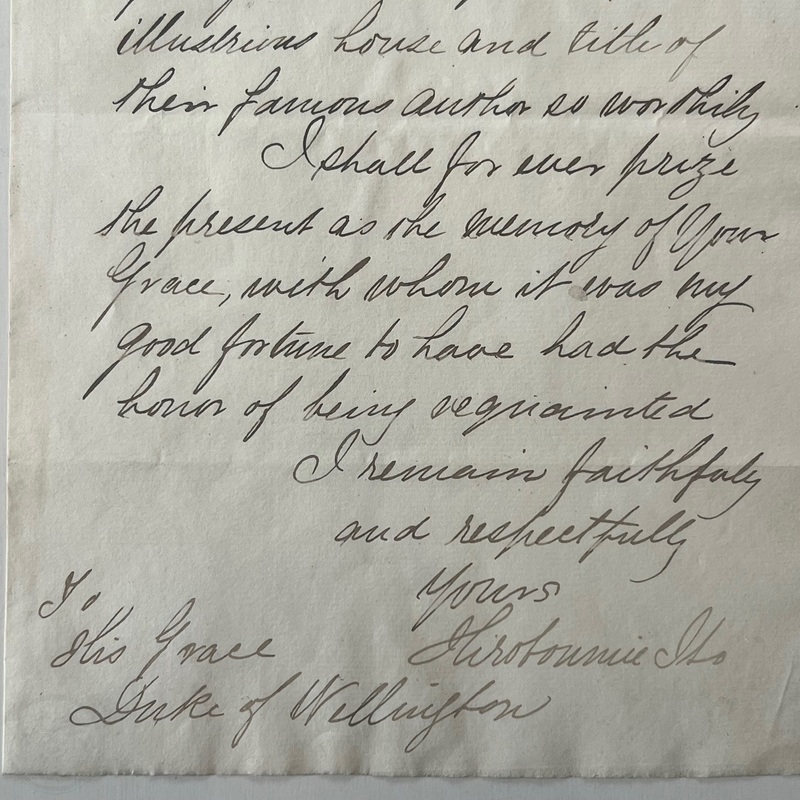 illustrious house and title of
their famous author so worthily
I shall for ever prize
the present as the memory of Your
Grace, with whom it was my
good fortune to have had the
honor of being acquainted
I remain faithfuly
and respectfully
Yours
To
His Grace
Hiroboumie Ito
Duke of Wellington